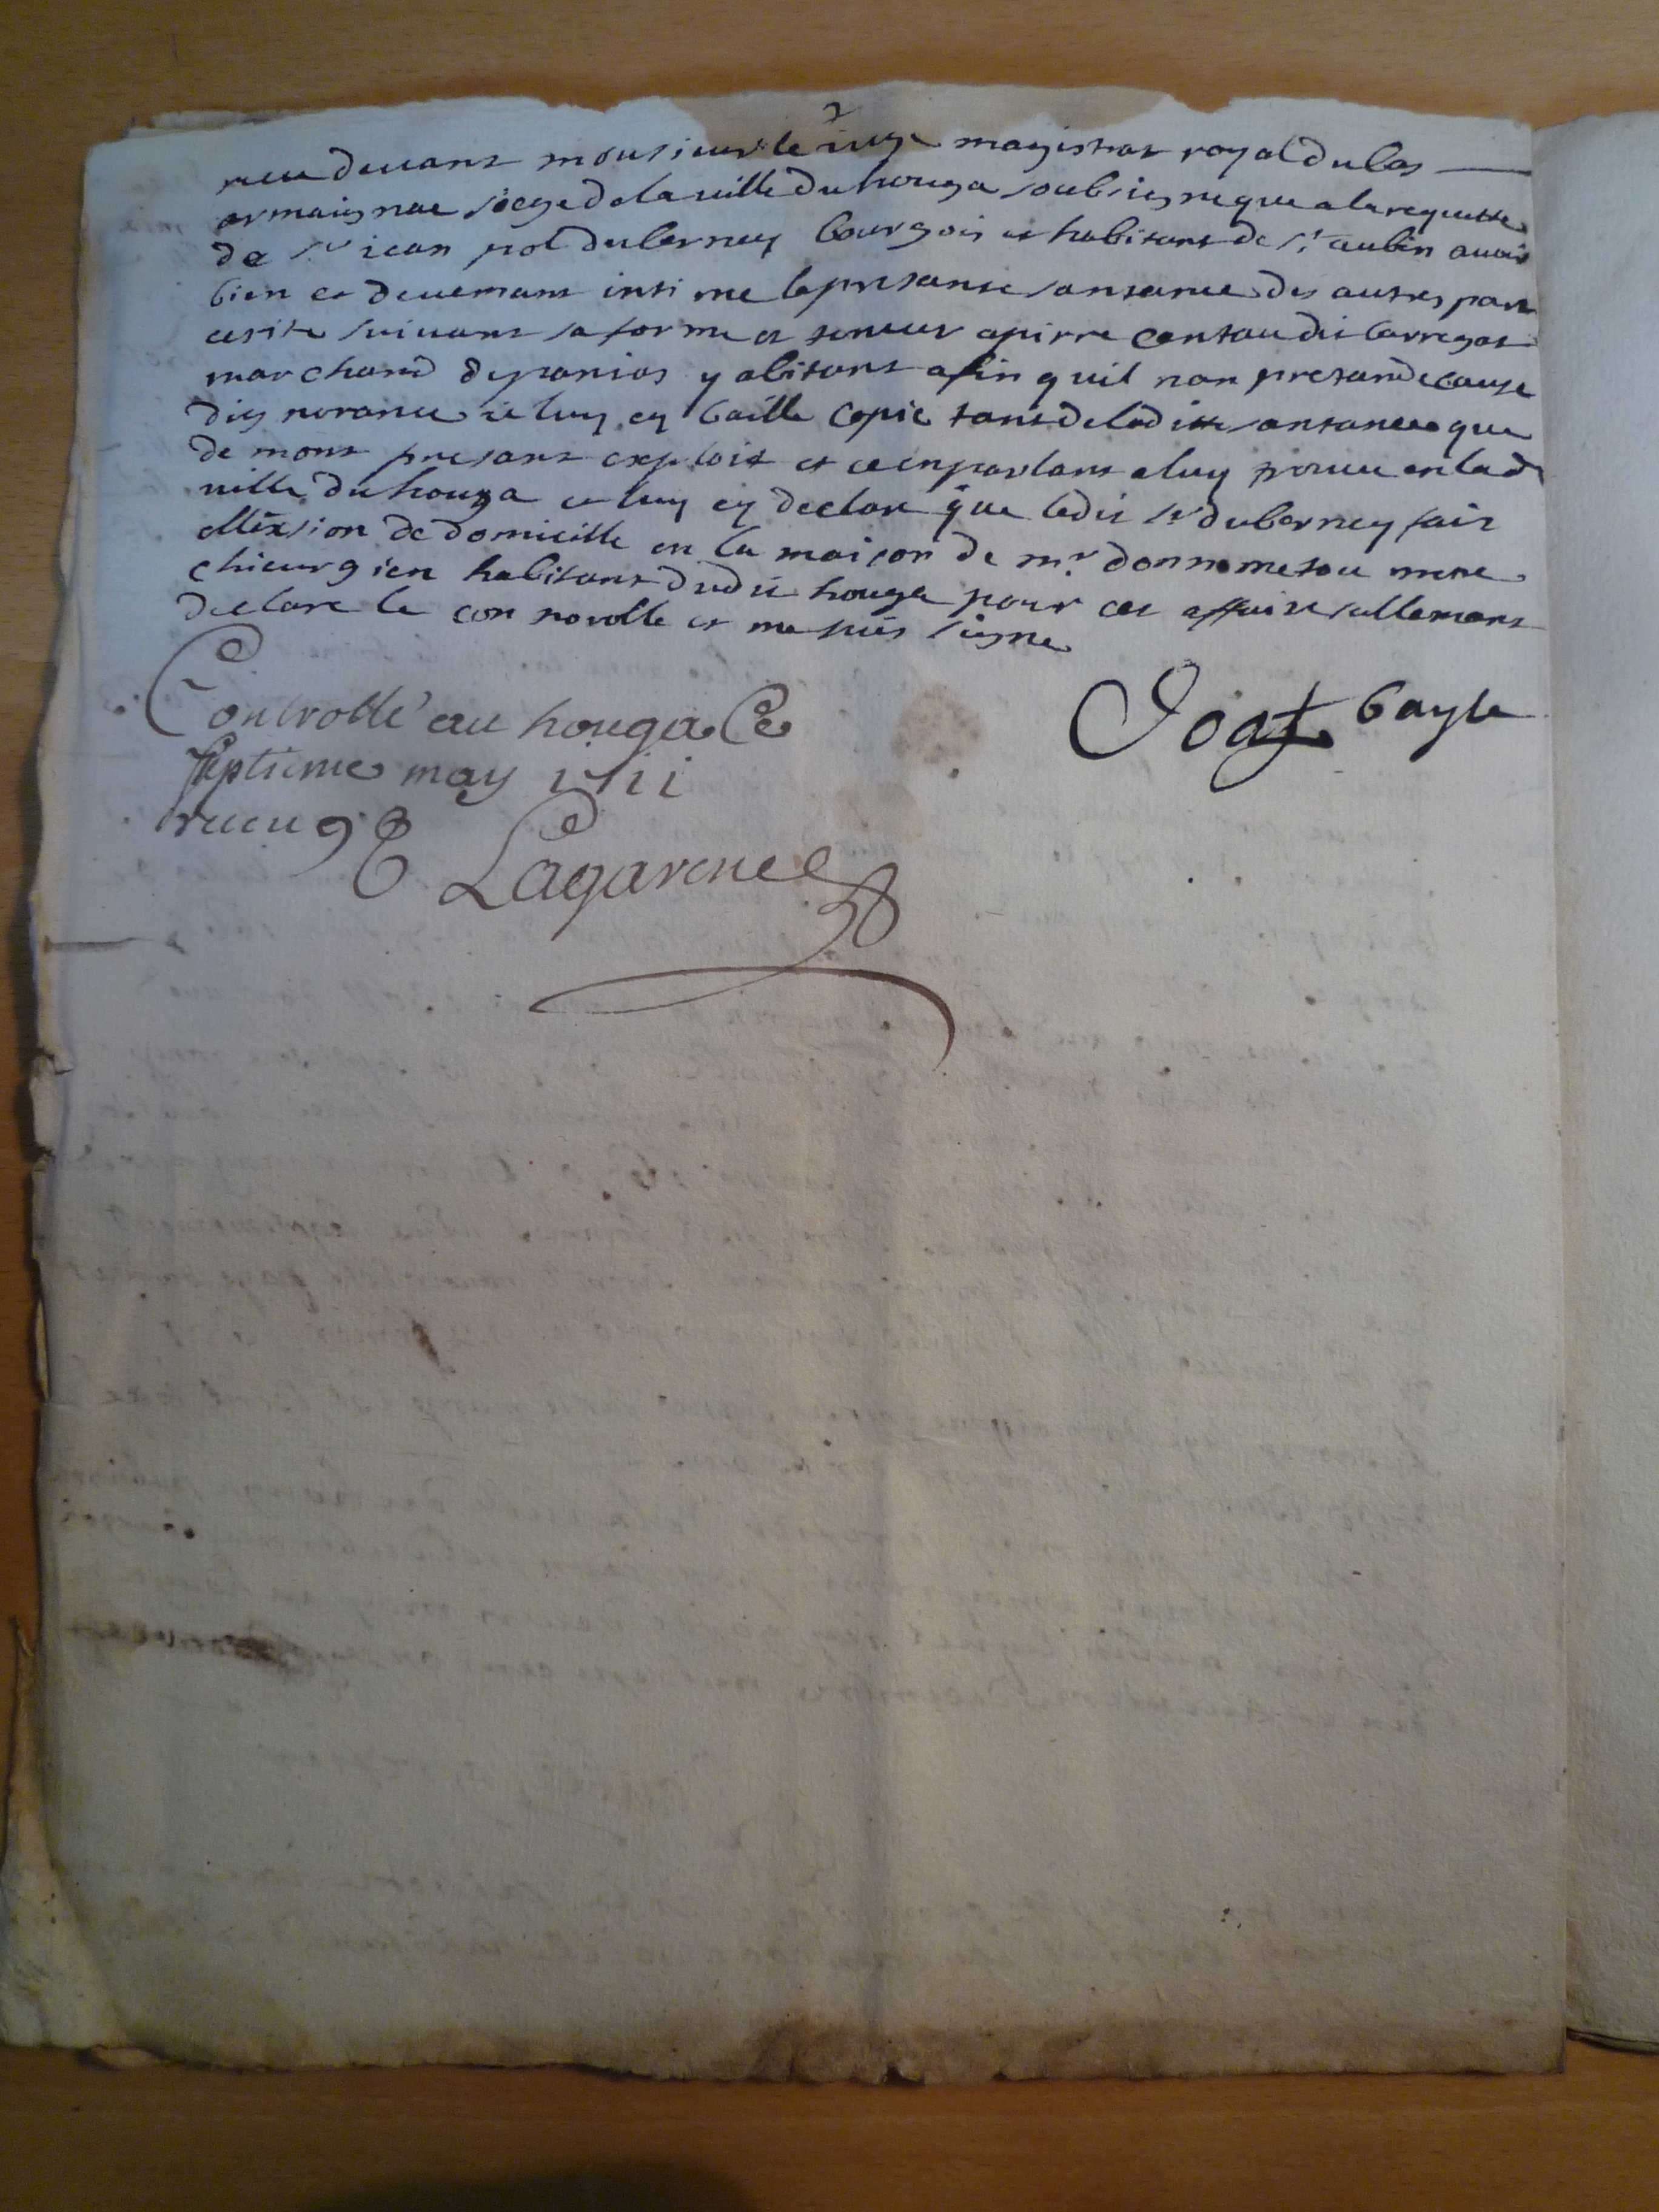 receu devant monsieur le juge magistrat royal du bas
armaignac siege de la ville du houga soubsigne que a la requette
de sr jean pol duberney bourgois et habitant de st aubin avoir
bien et deuemant intime la presante santance des autres part
escrite suivant sa forme et teneur a pierre dit barregat
marchand de y abitant afin quil nan pretande cause
dignorance je luy ey baille copie tant de laditte santance que
de mont presant exploit et ce en parlant a luy trouve en lad
ville du houga et luy ey declare que ledit sr duberney fait
ellexsion de domicille en la maison de mr me
chieurgien habitant dudit houga pour cet affaire sullemant
declare le connorolle et me suis signe
Goat bayle
Controllé au houga Ce
septieme may 1711
receu 9 s
Lagarene